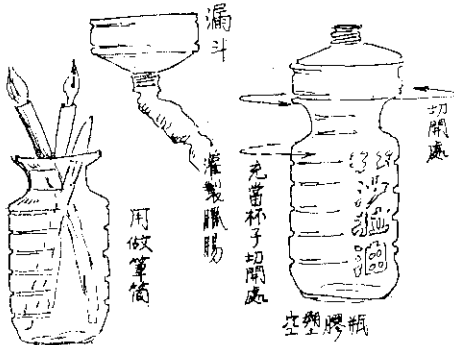 漏斗
灌製臘腸
用做筆筒
充當杯子切開處
切開處
空塑膠瓶